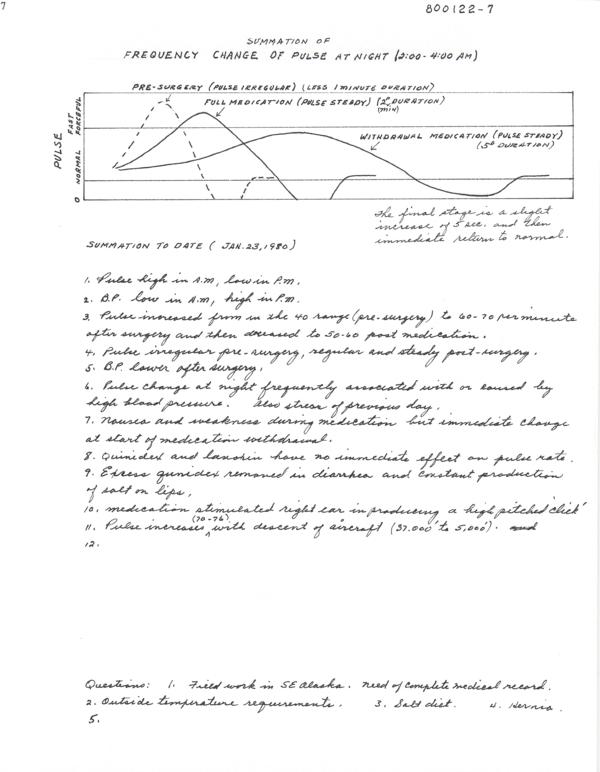 7
800122-7
SUMMATION OF
FREQUENCY CHANGE OF PULSE AT NIGHT (2:00-4:00 AM)
PRE-SURGERY (PULSE IRREGULAR) (LESS 1 MINUTE DURATION)
FULL MEDICATION (PULSE STEADY) (2º DURATION)
(MIN)
WITHDRAWAL MEDICATION (PULSE STEADY)
(5º DURATION)
PULSE
0 NORMAL FAST FORCEFUL
The final stage is a slight
increase of 5 sec. and then
immediate return to normal.
SUMMATION TO DATE ( JAN. 23, 1980)
1. Pulse high in A.M, low in P.M.
2. B.P. low in A.M, high in P.M.
3. Pulse increased from in the 40 range (pre-surgery) to 60-70 per minute
after surgery and then decreased to 50-60 post medication.
4. Pulse irregular pre-surgery, regular and steady post-surgery.
5. B.P. lower after surgery.
6. Pulse change at night frequently associated with or caused by
high blood pressure. Also stress of previous day.
7. Nausea and weakness during medication but immediate change
at start of medication withdrawal.
8. Quinidex and lanoxin have no immediate effect on pulse rate.
9. Excess qunidex removed in diarrhea and constant production
of salt on lips.
10. medication stimulated right ear in producing a high pitched 'click'
11. Pulse increases (70-76) with descent of aircraft (37.000' to 5,000').
12.
Questions: 1. Field work in SE Alaska. need of complete medical record.
2. Outside temperature requirements. 3. Salt diet. 4. Hernia.
5.